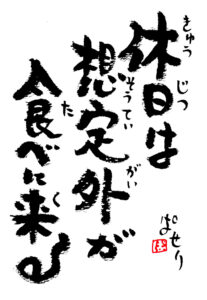 休日は
きゅうじつ
想定外が
そうていがい
食べに来る
たく
ぱせり
ぱ